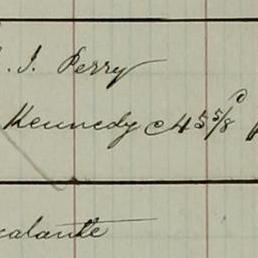 . I. Perry
Kennedy c 45 5/8 c
calante